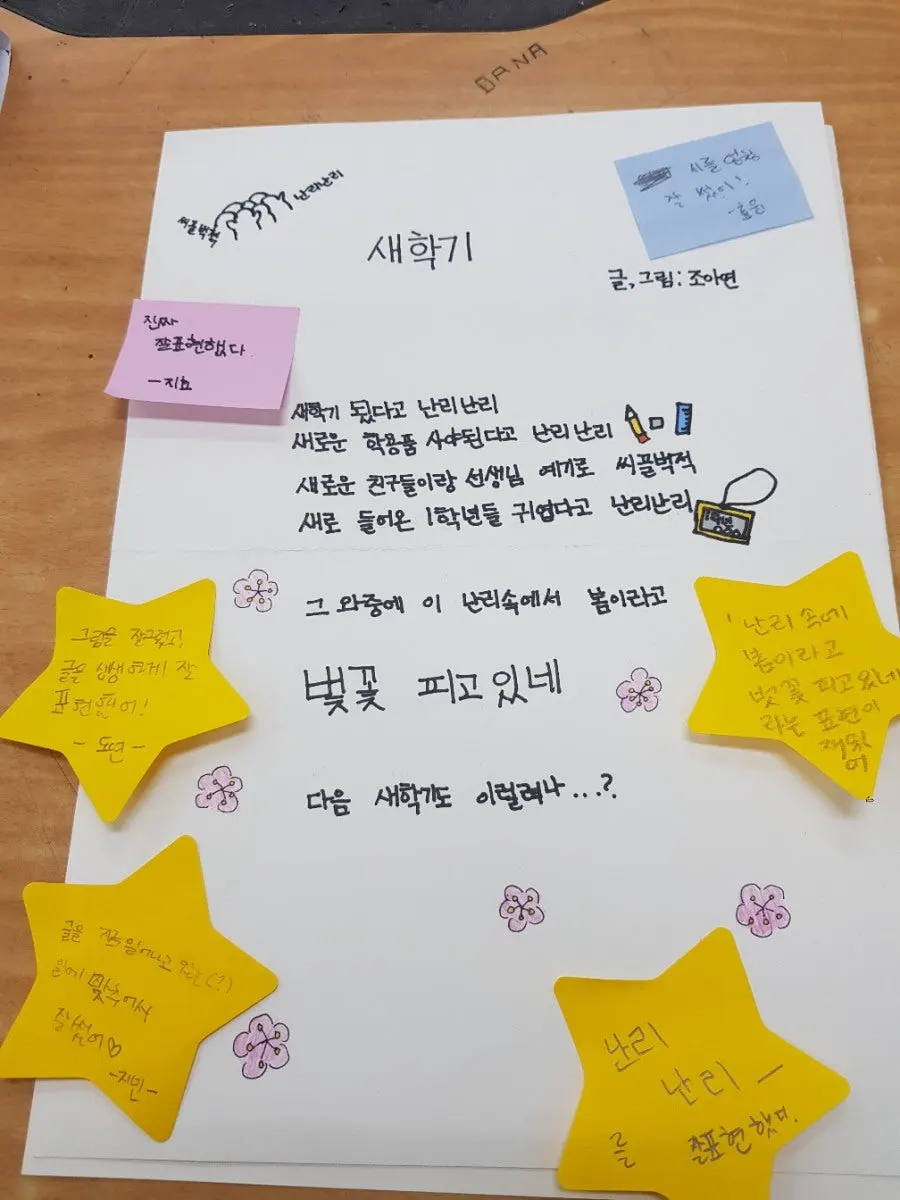 BANA
난리난리
씨끌벅적
시를 엄청
잘 썼어!
-효은
새학기
글,그림:조아연
진짜
잘표현했다.
-지효
새학기 됬다고 난리난리
새로운 학용품 사야된다고 난리난리
새로운 친구들이랑 선생님 예기로 씨끌벅적
새로 들어온 1학년들 귀엽다고 난리난리
1학년
그 와중에 이 난리속에서 봄이라고
벚꽃 피고있네
다음 새학기도 이럴려나...?
그림을 잘그렸고,
글을 생생하게 잘
표현했어!
- 도연 -
난리 속에
봄이라고
벚꽃 피고있네
라는 표현이
재밌
어
글을 지금 일어나고 있는(?)
일에 맞추어서
잘썼어♡
-지빈-
난리
난리 -
를 잘표현했다.